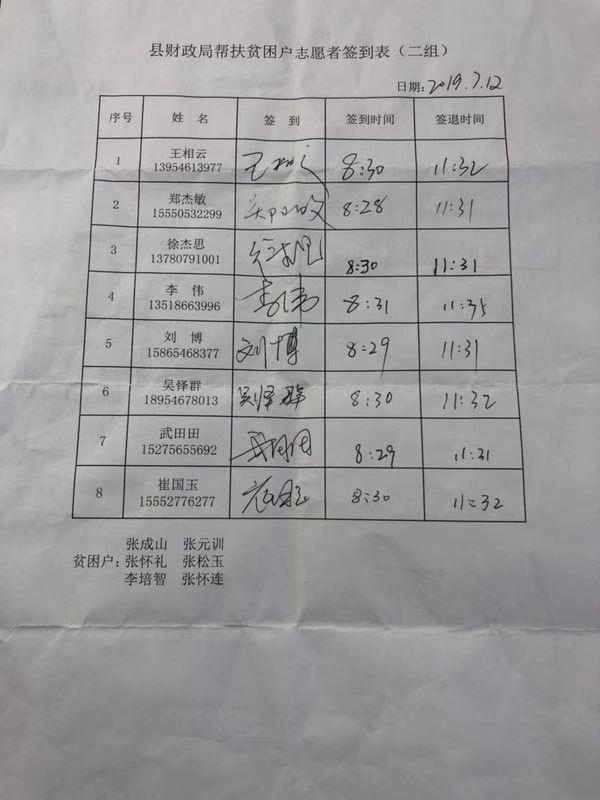 县财政局帮扶贫困户志愿者签到表（二组）
日期：2019.7.12
序号 姓 名 签 到 签到时间 签退时间
1 王相云 王相云 8:30 11:32
13954613977
2 郑杰敏 郑杰敏 8:28 11:31
15550532299
3 徐杰思 徐杰思 8:30 11:31
13780791001
4 李 伟 李伟 8:31 11:35
13518663996
5 刘 博 刘博 8:29 11:31
15865468377
6 吴怿群 吴怿群 8:30 11:32
18954678013
7 武田田 武田田 8:29 11:31
15275655692
8 崔国玉 崔国玉 8:30 11:32
15552776277
张成山 张元训
贫困户：张怀礼 张松玉
李培智 张怀连